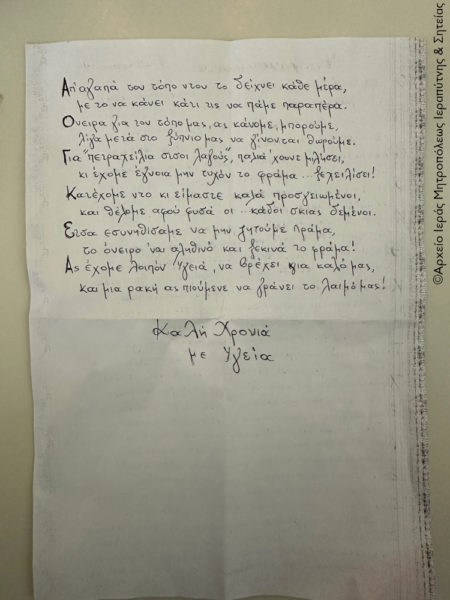 Απ' αγαπά τον τόπο ντου το δείχνει κάθε μέρα,
με το να κάνει κάτι τις να πάμε παραπέρα.
Ονειρα για τον τόπο μας, ας κάνομε, μπορούμε,
λίγα μετά στο ξύπνιο μας να γίνονται θωρούμε.
Για "πετραχείλια σισοι λαγούς", παλιά 'χουνε μιλήσει,
κι έχομε έγνοια μην τυχόν το φράμα ... ξεχειλίσει!
Κατέχομε ντο κι είμαστε καλά προσγειωμένοι,
και θέλομε αφού φυσά οι ... κάδοι σκιας δεμένοι.
Ετσα εσυνηθίσαμε να μην ζητούμε πράμα,
το όνειρο 'ναι αληθινό και ξεκινά το φράμα!
Ας έχομε λοιπόν Υγειά, να βρέχει για καλό μας,
και μια ρακή ας πιούμενε να γράνει το λαιμό μας!
Καλή Χρονιά
με Υγεία
©Αρχείο Ιεράς Μητροπόλεως Ιεραπύτνης & Σητείας